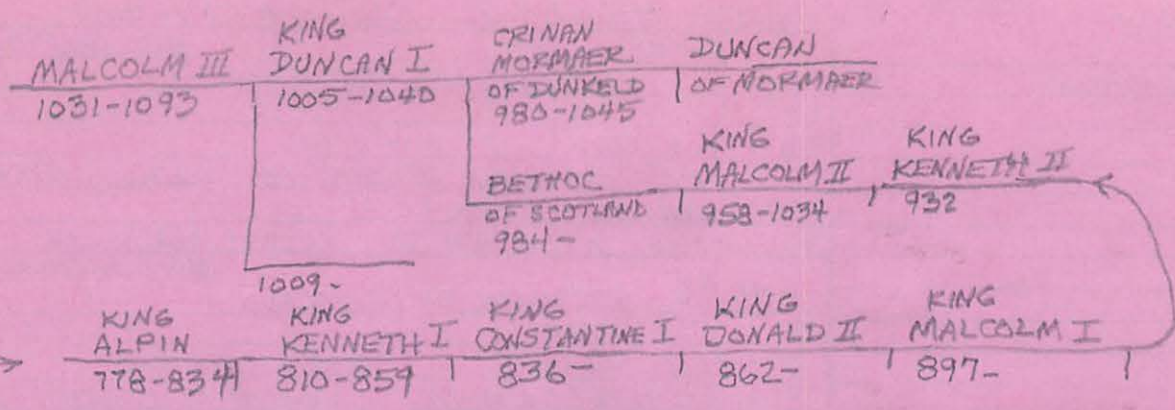 MALCOLM III
1031-1093
KING
DUNCAN I
1005-1040
CRINAN
MORMAER
OF DUNKELD
980-1045
DUNCAN
OF MORMAER
BETHOC
OF SCOTLAND
984-
KING
MALCOLM II
958-1034
KING
KENNETH II
932
1009-
KING
ALPIN
778-834
KING
KENNETH I
810-859
KING
CONSTANTINE I
836-
KING
DONALD II
862-
KING
MALCOLM I
897-